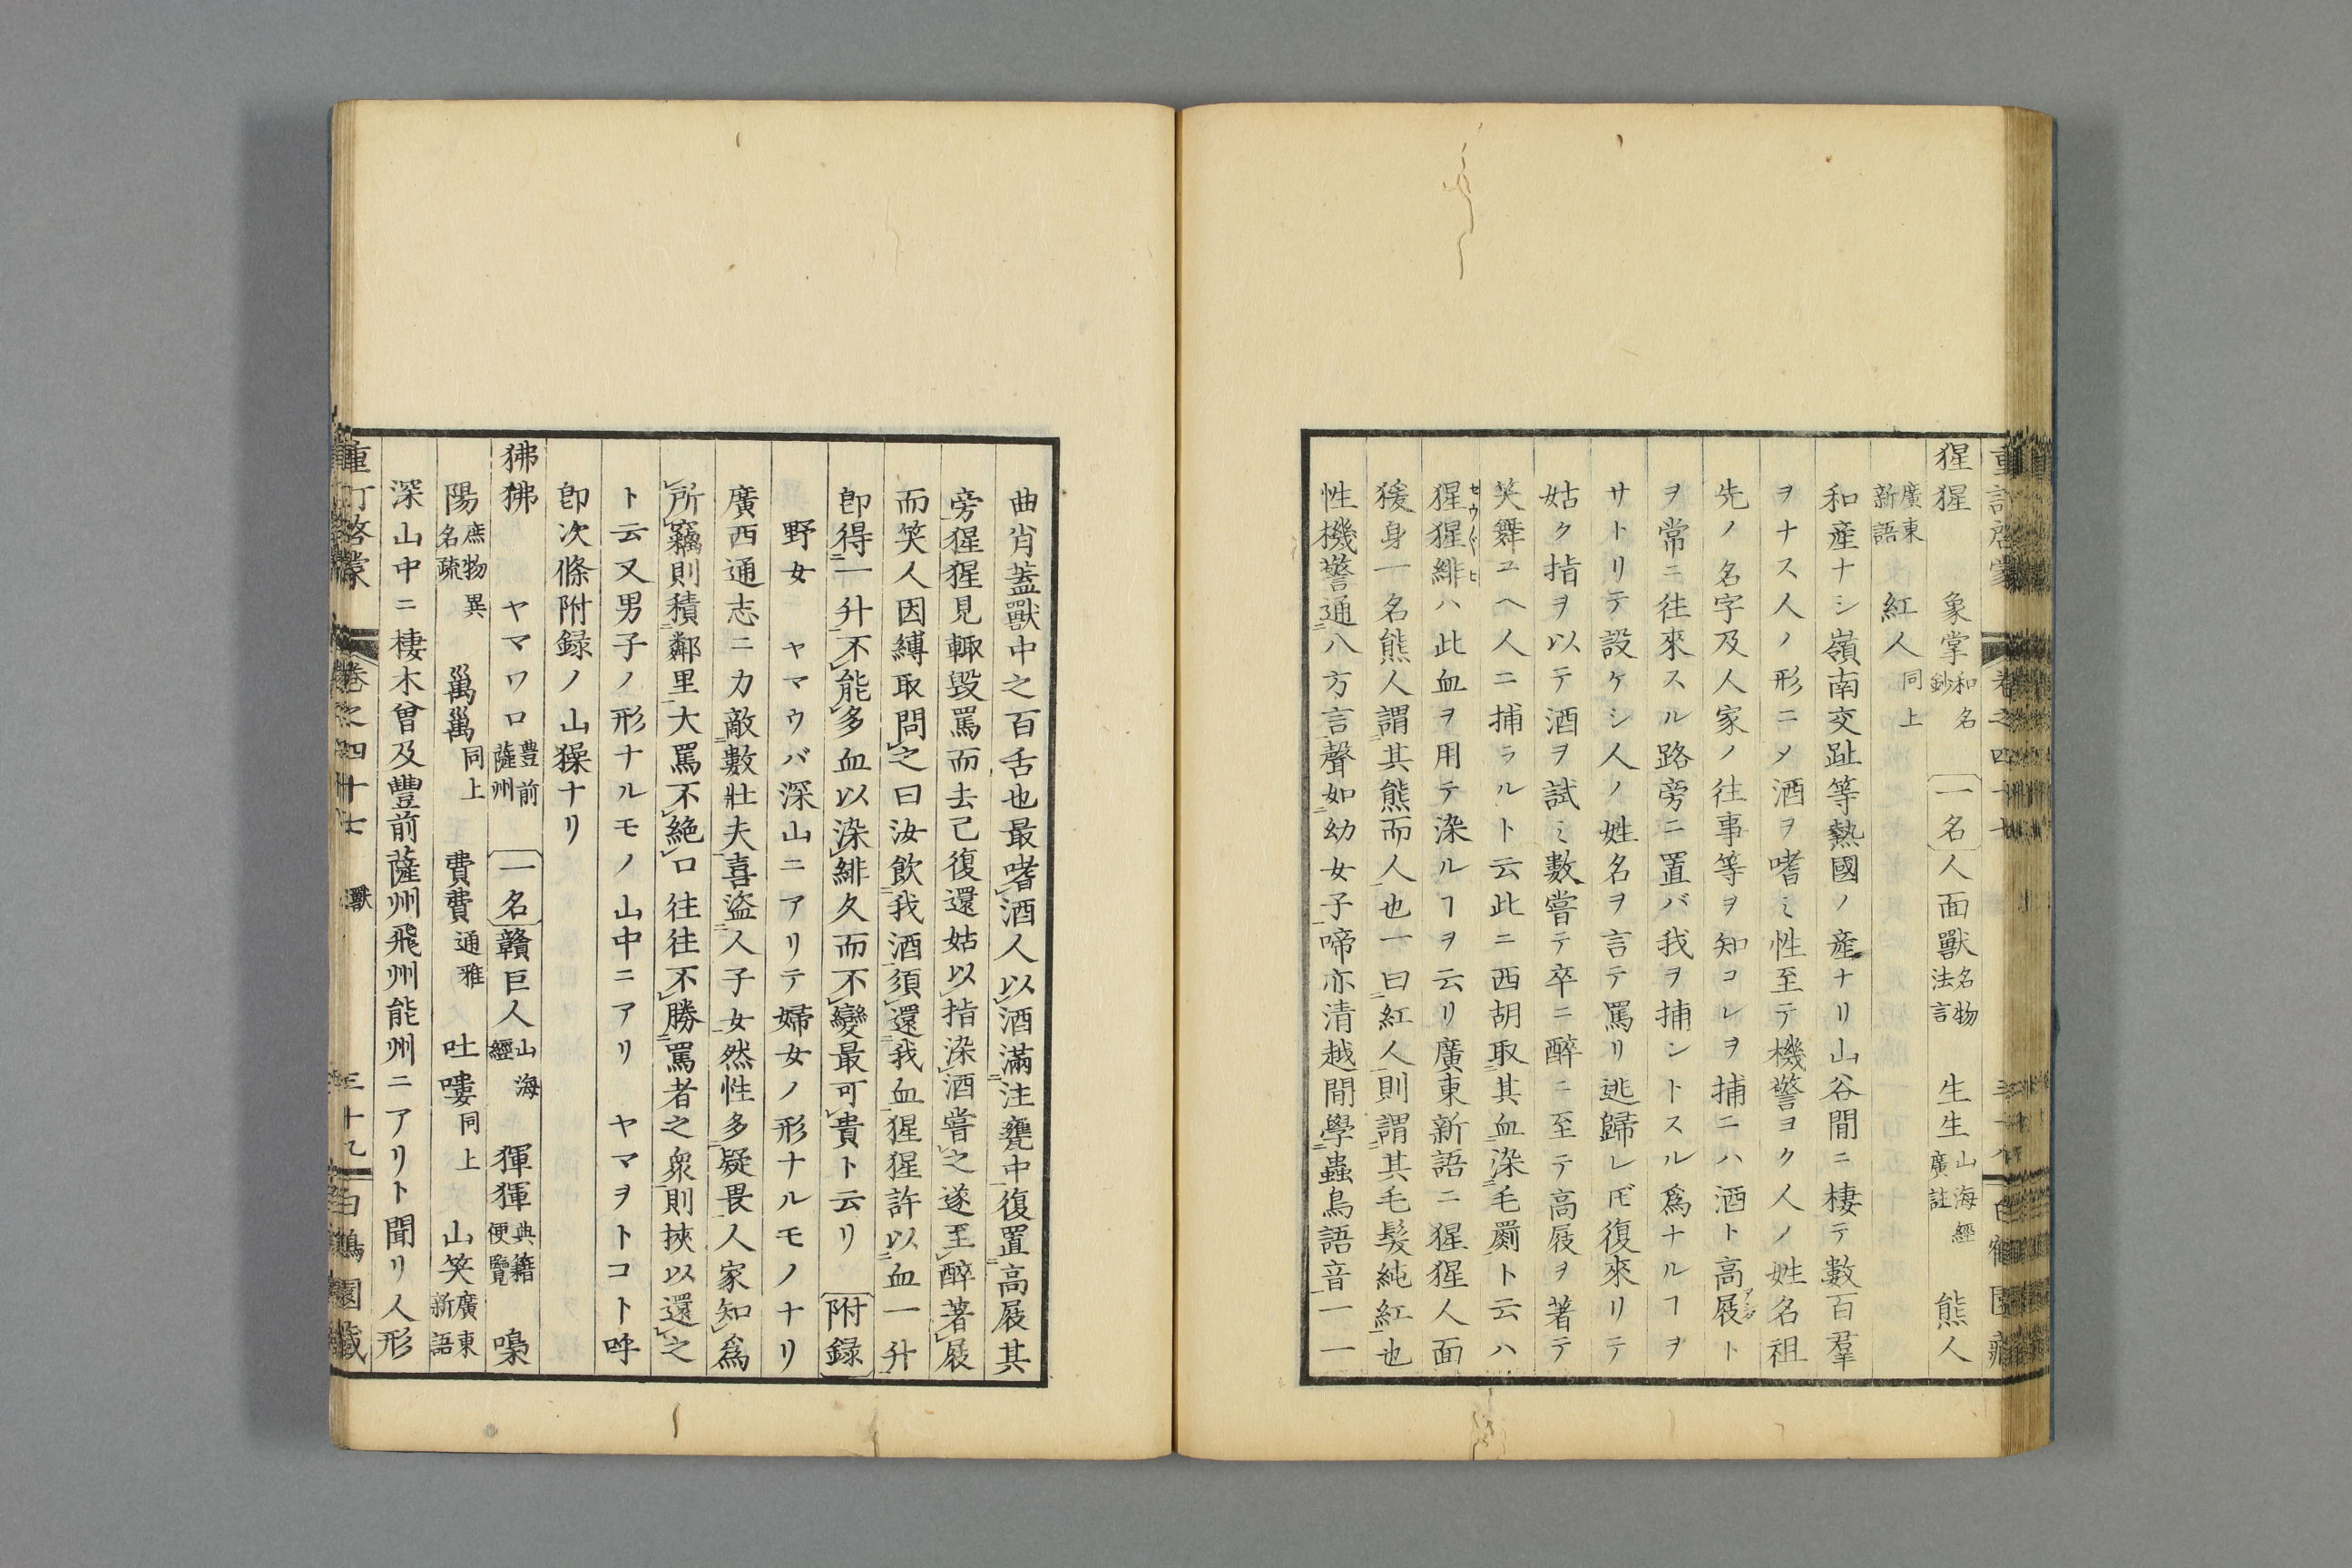 重訂啓蒙 卷之四十七 三十八 白鶴園藏
猩猩 象掌 和名鈔 一名 人面獸 名物法言 生生 山海經廣註 熊人
廣東新語 紅人 同上
和産ナシ嶺南交趾等熱國ノ産ナリ山谷間ニ棲テ數百羣
ヲナス人ノ形ニ〆酒ヲ嗜ミ性至テ機警ヨク人ノ姓名祖
先ノ名字及人家ノ往事等ヲ知コレヲ捕ニハ酒ト高屐アシダト
ヲ常ニ往來スル路旁ニ置バ我ヲ捕ントスル爲ナルヿヲ
サトリテ設ケシ人ノ姓名ヲ言テ罵リ逃歸レ𪜈復來リテ
姑ク指ヲ以テ酒ヲ試ミ數嘗テ卒ニ醉ニ至テ高屐ヲ著テ
笑舞ユヘ人ニ捕ラルト云此ニ西胡取其血染毛罽ト云ハ
猩猩緋セウ〲ヒハ此血ヲ用テ染ルヿヲ云リ廣東新語ニ猩猩人面
猨身一名熊人謂其熊而人也一曰紅人則謂其毛髮純紅也
性機警通八方言聲如幼女子啼亦清越間學蟲鳥語音一一
曲肖蓋獸中之百舌也最嗜酒人以酒滿注甕中復置高屐其
旁猩猩見輙毀罵而去已復還姑以指染酒嘗之遂至醉著屐
而笑人因縛取問之曰汝飮我酒須還我血猩猩許以血一升
卽得一升不能多血以染緋久而不變最可貴ト云リ 附録
野女 ヤマウバ深山ニアリテ婦女ノ形ナルモノナリ
廣西通志ニ力敵數壯夫喜盜人子女然性多疑畏人家知爲
所竊則積鄰里大罵不絶口往往不勝罵者之衆則挾以還之
ト云又男子ノ形ナルモノ山中ニアリ ヤマヲトコト呼
卽次條附録ノ山𤢖ナリ
狒狒 ヤマワロ 豊前薩州 一名 贛巨人 山海經 獋獋 典籍便覽 嘄
陽 庶物異名疏 𡿺𡿺 同上 費費 通雅 吐嘍 同上 山笑 廣東新語
深山中ニ棲木曾及豐前薩州飛州能州ニアリト聞リ人形
重訂啓蒙 卷之四十七 獸 三十九 白鶴園藏